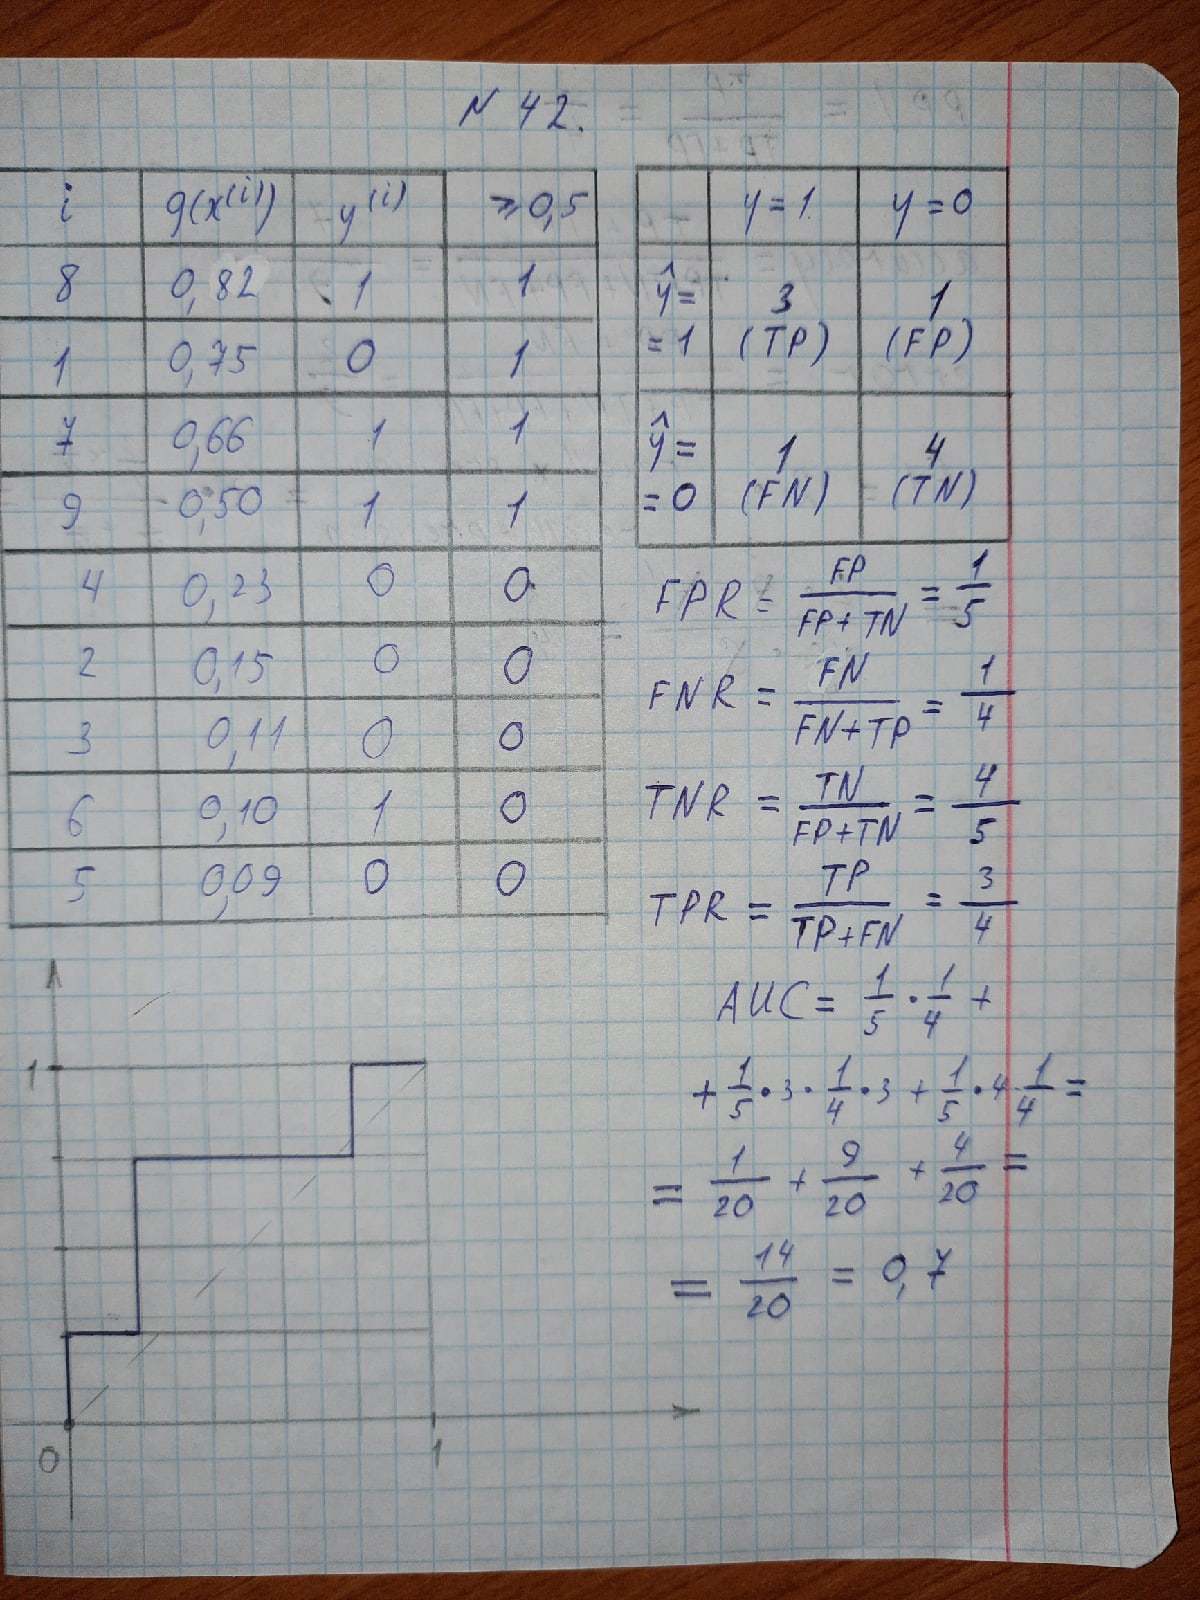 N 42.
i g(x^(i)) y^(i) ≥0,5
8 0,82 1 1
1 0,75 0 1
7 0,66 1 1
9 0,50 1 1
4 0,23 0 0
2 0,15 0 0
3 0,11 0 0
6 0,10 1 0
5 0,09 0 0
y=1 y=0
ŷ= 3 1
=1 (TP) (FP)
ŷ= 1 4
=0 (FN) (TN)
FPR = FP/(FP+TN) = 1/5
FNR = FN/(FN+TP) = 1/4
TNR = TN/(FP+TN) = 4/5
TPR = TP/(TP+FN) = 3/4
AUC = 1/5 · 1/4 +
+ 1/5 · 3 · 1/4 · 3 + 1/5 · 4 1/4 =
= 1/20 + 9/20 + 4/20 =
= 14/20 = 0,7
1
0
1